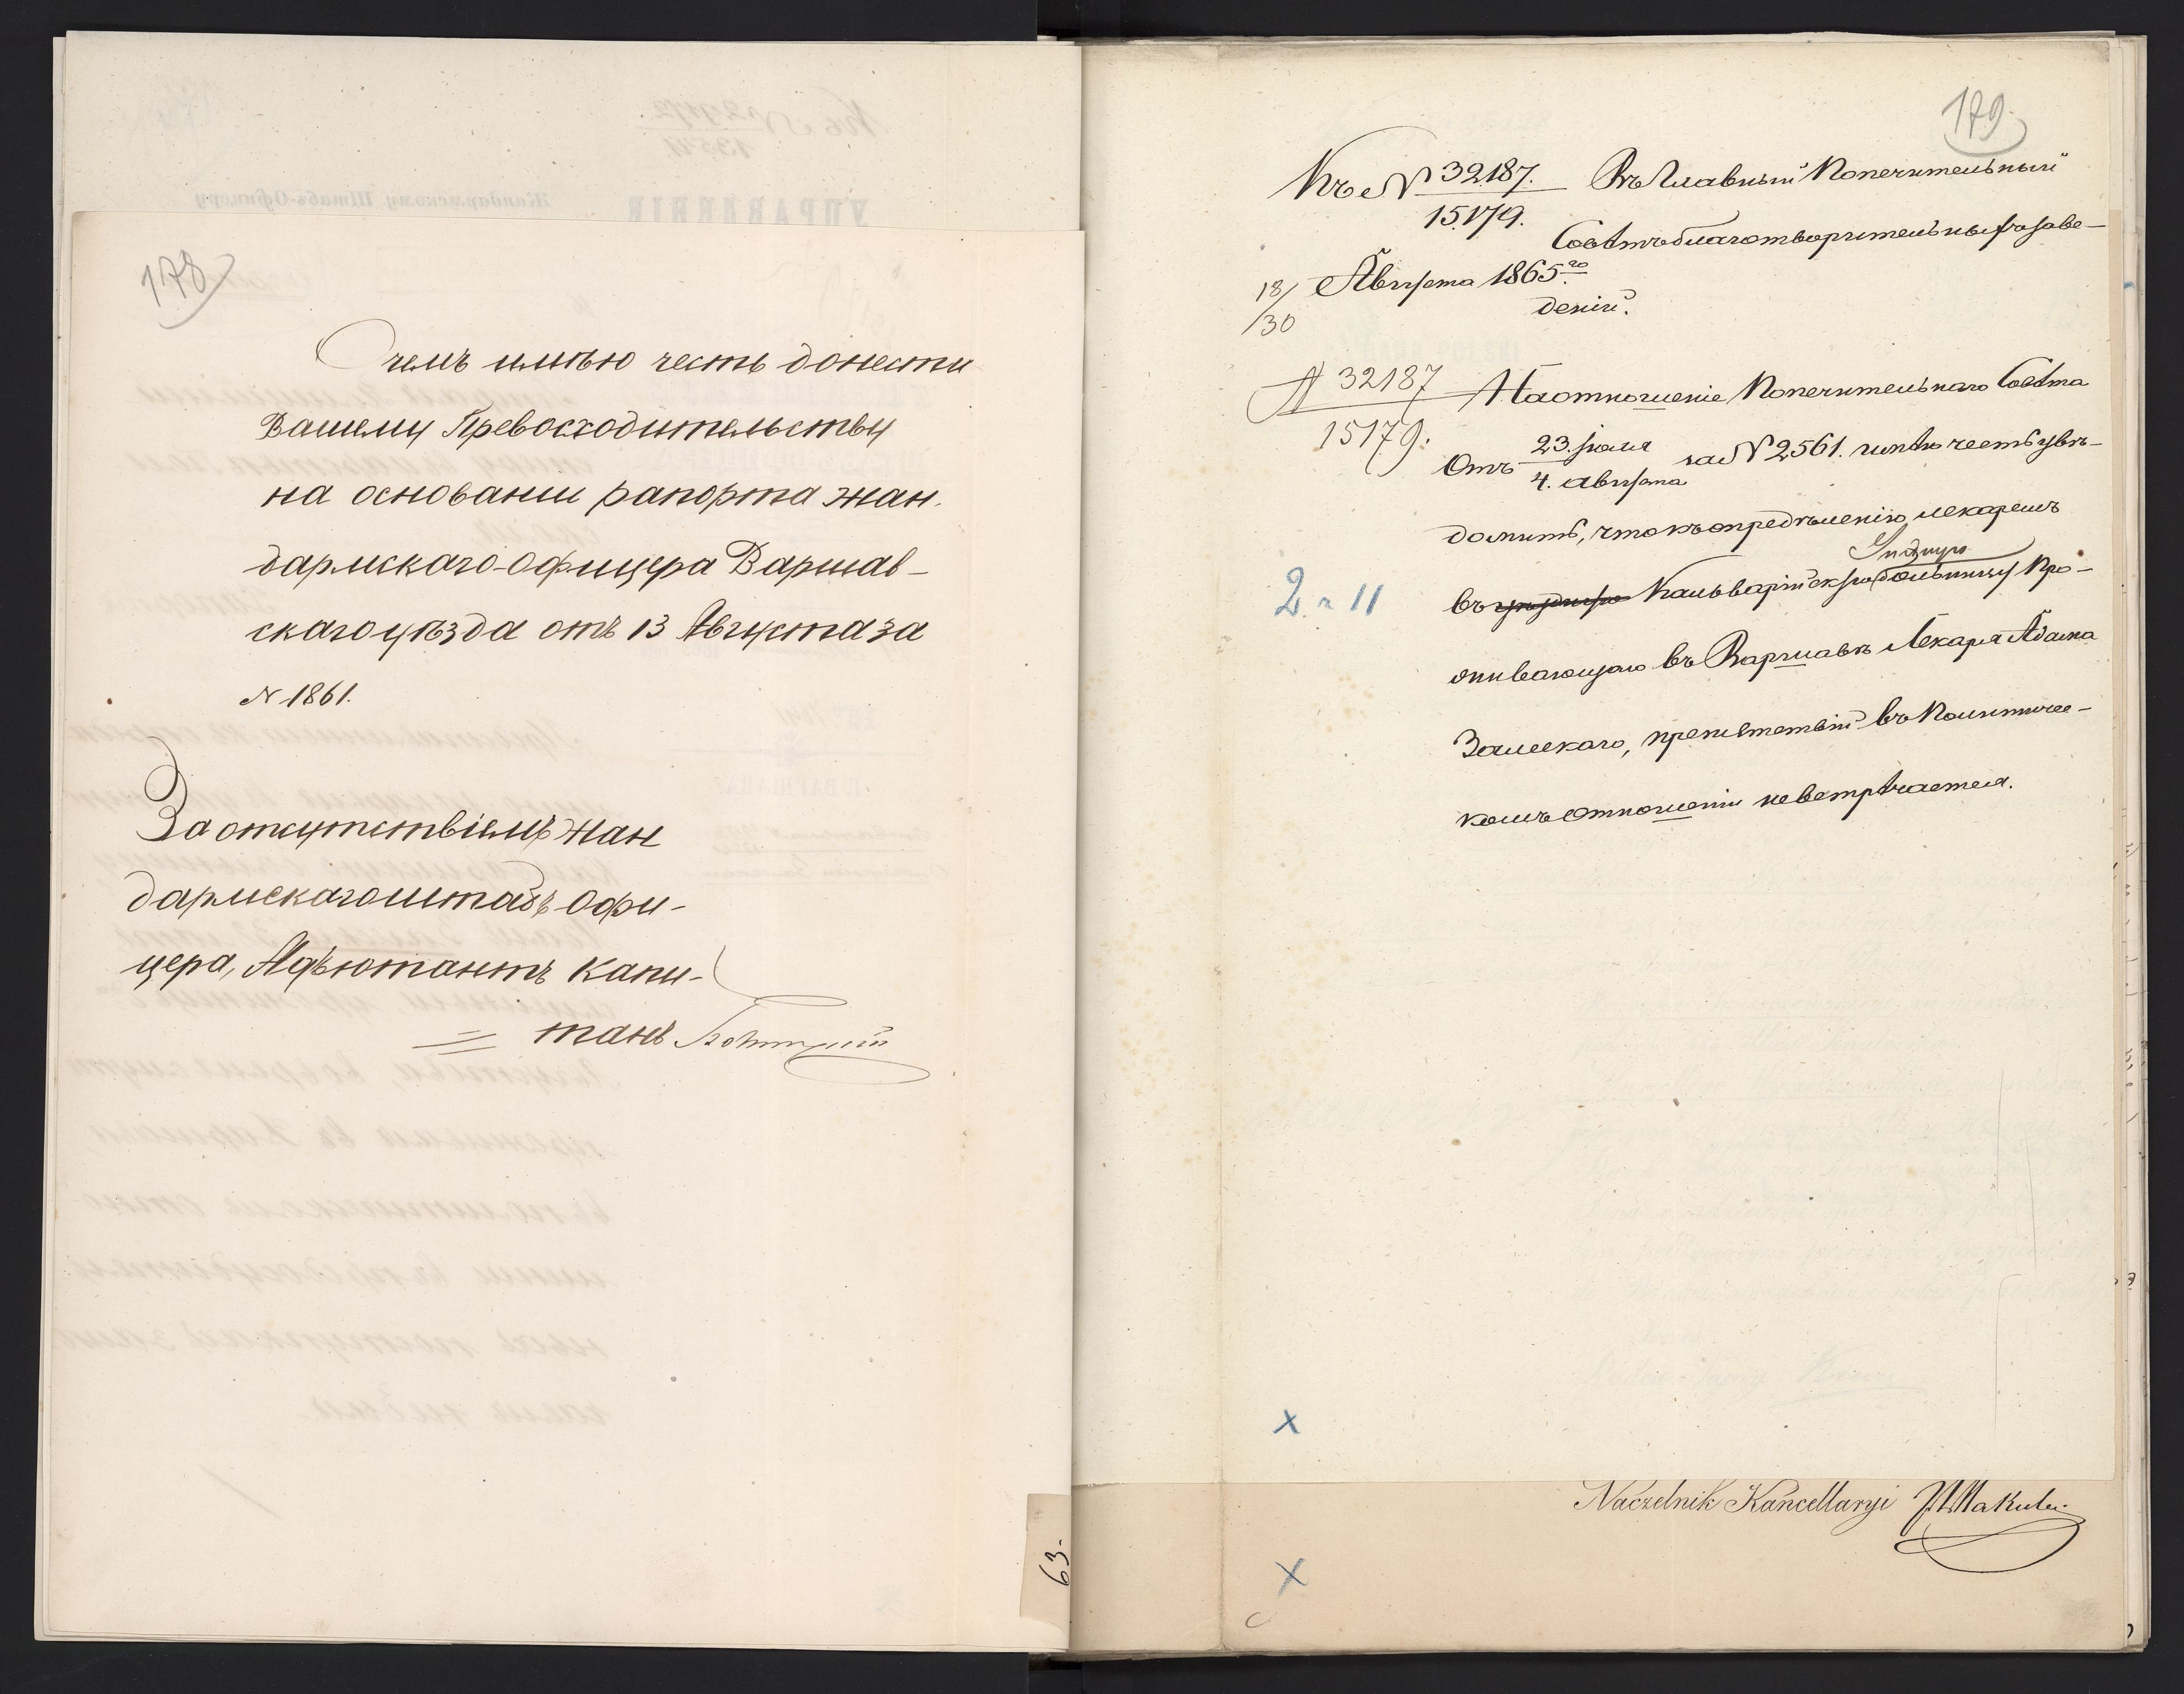 178
О чемъ имѣю честь донести
Вашему Превосходительству
на основаніи рапорта жан-
дармскаго офицера Варшав-
скаго уѣзда отъ 13 Августа за
№ 1861.
За отсутствіемъ жан
дармскаго штабъ офи-
цера, Адъютантъ Капи-
танъ
63.
179.
Къ № 32187.
15179.
18/30 Августа 1865го
Въ Главный Попечительный
Совѣтъ благотворительныхъ заве-
деній.
№ 32187
15179.
На отношеніе Попечительнаго Совѣта
отъ 23. Іюля
4. августа за № 2561. имѣю честь увѣ-
домить, что къ опредѣленію лекаремъ
въ Кальварійскую больницу про-
живающаго въ Варшавѣ Лекаря Адама
Залескаго, препятствій въ Политичес-
комъ отношеніи не встрѣчается.
2 11
x
Naczelnik Kancellaryi
x